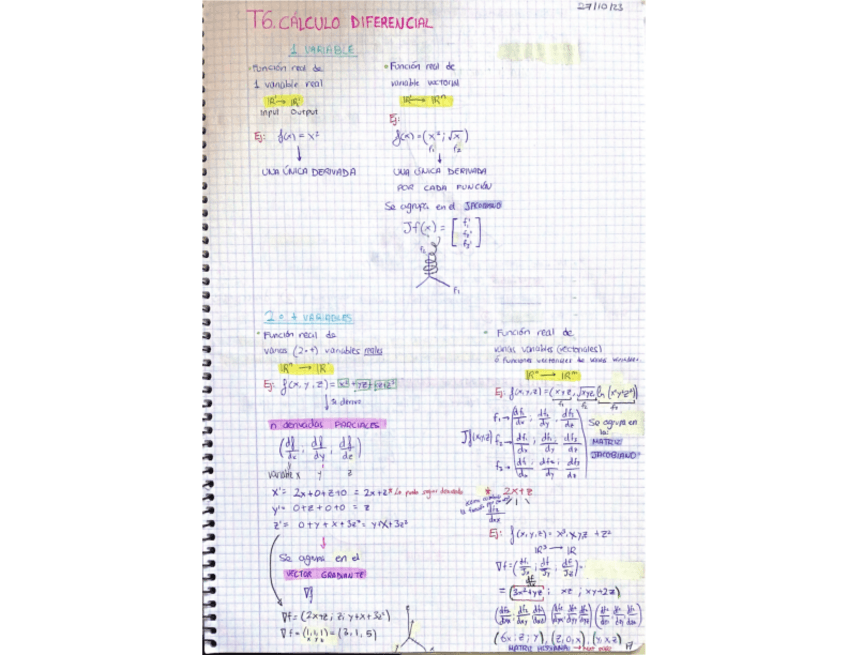 27/10/23
T6. CÁLCULO DIFERENCIAL
1 VARIABLE
• Función real de
1 variable real
ℝ¹ → ℝ¹
Input Output
Ej: f(x) = x²
↓
UNA ÚNICA DERIVADA
• Función real de
variable vectorial
ℝ¹ → ℝⁿ
Ej:
f(x) = (x² ; √x)
f₁ f₂
↓
UNA ÚNICA DERIVADA
POR CADA FUNCIÓN
Se agrupa en el JACOBIANO
Jf(x) = [f₁' f₂' f₃']
f₁
2 o + VARIABLES
• Función real de
varias (2 o +) variables reales
ℝⁿ → ℝ¹
Ej: f(x, y, z) = x² + yz +
↓ se deriva
n derivadas PARCIALES
(df/dx ; df/dy ; df/dz)
variable x y z
x' = 2x+0+z+0 = 2x+z * Lo puedo seguir derivando
y' = 0+z+0+0 = z
z' = 0+y+x+3z² = y+x+3z²
↓
Se agrupa en el
VECTOR GRADIANTE
∇f
∇f = (2x+z ; z ; y+x+3z²)
∇f = (1,1,1) = (3, 1, 5)
x y z
• Función real de
varias variables (vectoriales)
o funciones vectoriales de varias variables.
ℝⁿ → ℝᵐ
Ej: f(x,y,z) = (x+z, √xyz, ln(x²y²z²))
f₁ f₂ f₃
Jf(x,y,z)
f₁ → df₁/dx ; df₁/dy ; df₁/dz
f₂ → df₂/dx ; df₂/dy ; df₂/dz
f₃ → df₃/dx ; df₃/dy ; df₃/dz
Se agrupa en
la:
MATRIZ
JACOBIANO
* 2x+z
Ej: f(x,y,z) = x³ + xyz + z²
ℝ³ → ℝ
∇f = (df/dx ; df/dy ; df/dz) =
= (3x²+yz ; xz ; xy+2z)
(6x ; z ; y), (z, 0, x), (y, x, 2)
MATRIZ HESSIANA →